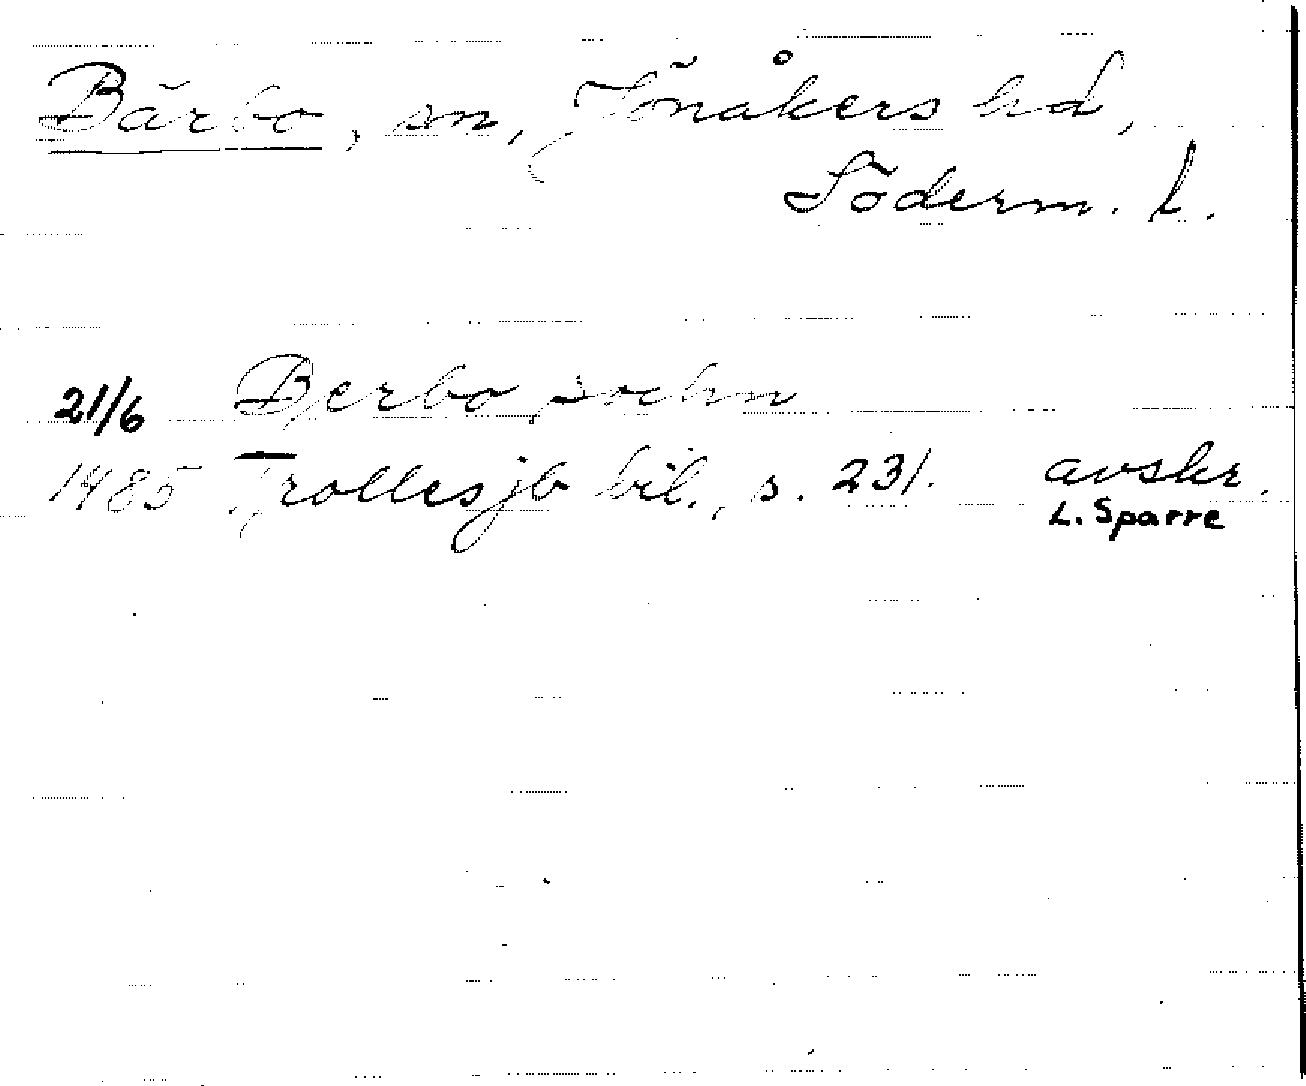 Bärbo, sn, Jönåkers hd,
Söderm. l.
21/6 Berbo sochn
1485 Trolles jb bil., s. 231. avskr.
L. Sparre